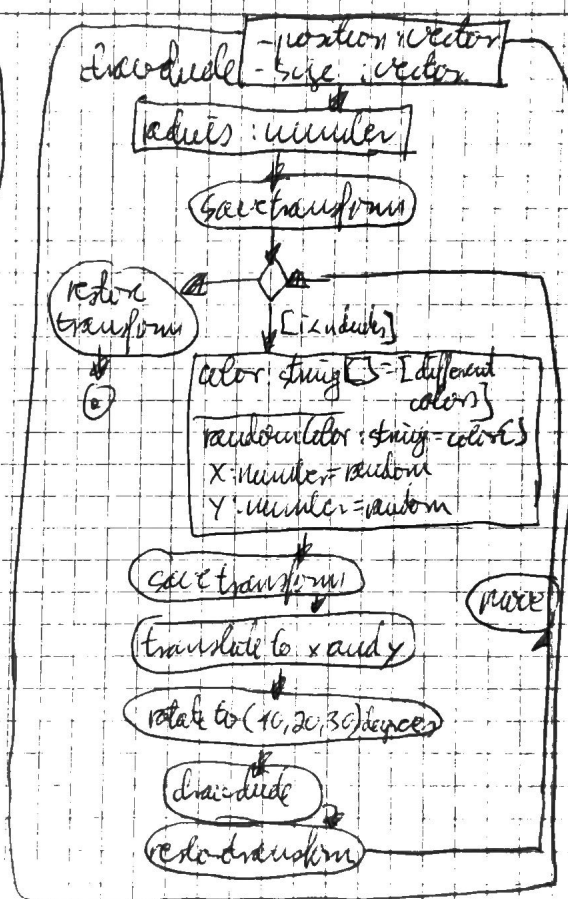 - position : vector
drawdude - size : vector
radius : number
save transform
restore
transform
[i<ndudes]
color : string[] = [different
colors]
randomColor : string = color[]
X : number = random
Y : number = random
save transform
translate to x and y
rotate to (10,20,30) degrees
draw dude
restore transform